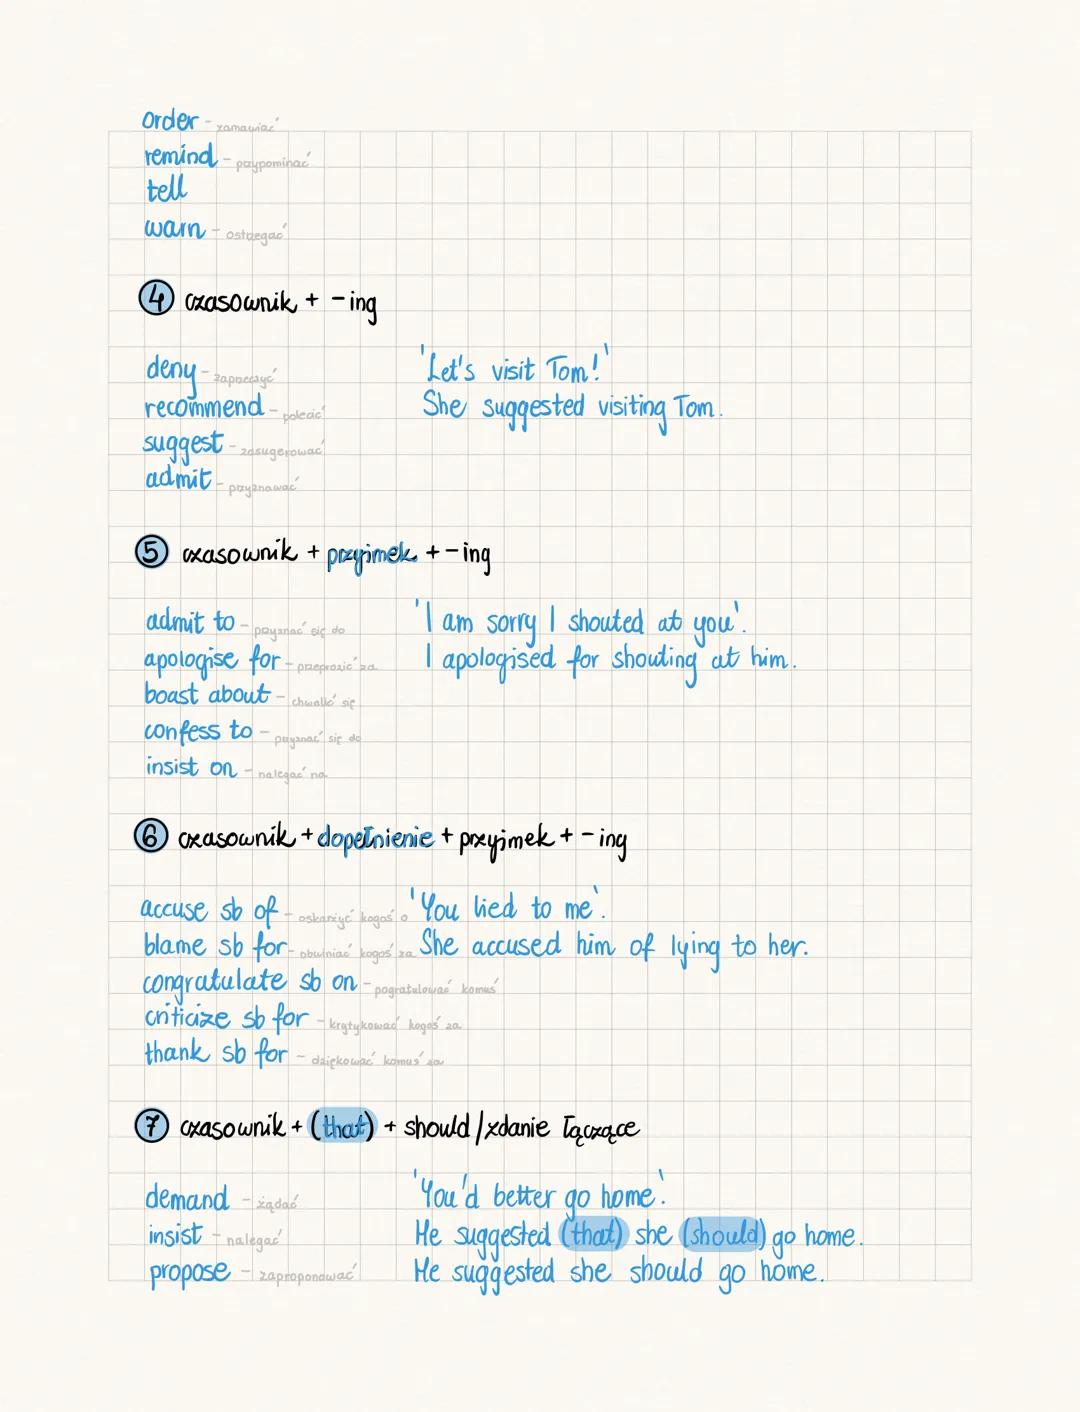 order - zamawiać
remind - przypominać
tell
warn - ostrzegać
4 czasownik + -ing
deny - zaprzeczyć
recommend - polecić
suggest - zasugerować
admit - przyznawać
'Let's visit Tom!'
She suggested visiting Tom.
5 czasownik + przyimek + -ing
admit to - przyznać się do
apologise for - przeprosić za
boast about - chwalić się
confess to - przyznać się do
insist on - nalegać na
'I am sorry I shouted at you'.
I apologised for shouting at him.
6 czasownik + dopełnienie + przyimek + -ing
accuse sb of - oskarżyć kogoś o
blame sb for - obwiniać kogoś za
congratulate sb on - pogratulować komuś
criticize sb for - krytykować kogoś za
thank sb for - dziękować komuś za
'You lied to me'.
She accused him of lying to her.
7 czasownik + (that) + should/zdanie łączące
demand - żądać
insist - nalegać
propose - zaproponować
'You'd better go home'.
He suggested (that) she (should) go home.
He suggested she should go home.